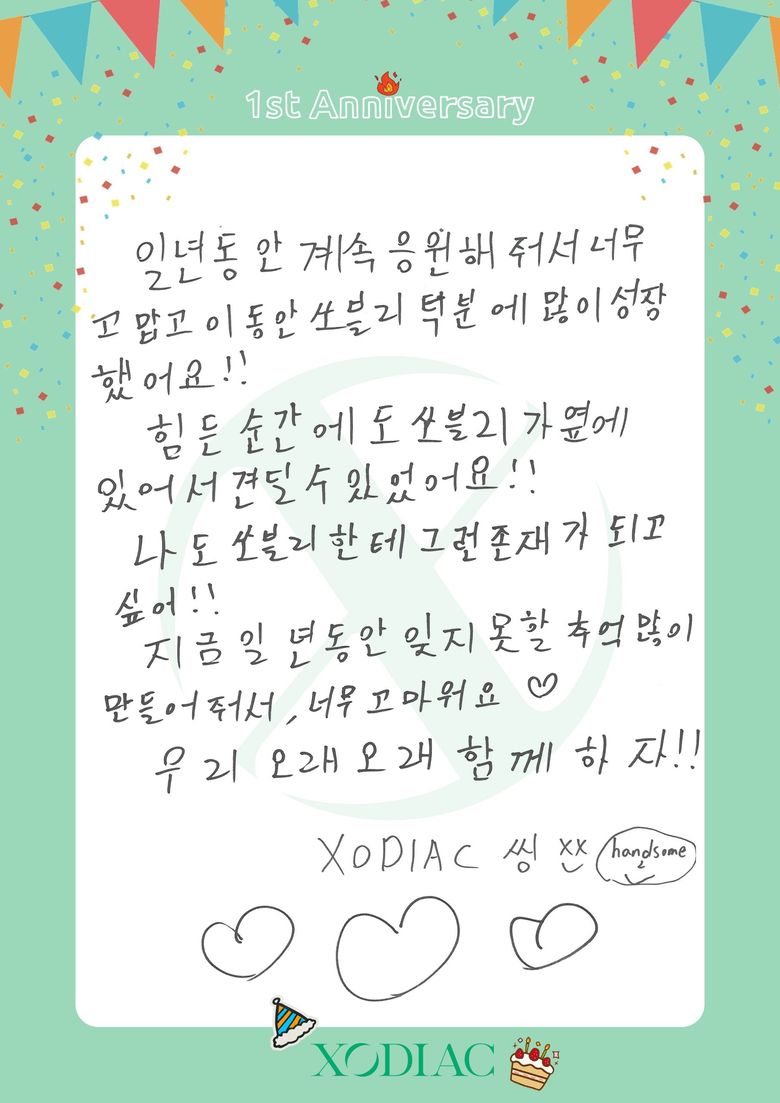 1st Anniversary
일년동안 계속 응원해 줘서 너무
고맙고 이동안 쏘블리 턱분에 많이 성장
했어요!!
힘든 순간에도 쏘블리가 옆에
있어서 견딜 수 있었어요!!
나도 쏘블리한테 그런존재가 되고
싶어!!
지금 일 년동안 잊지 못할 추억 많이
만들어 줘서, 너무 고마워요 ♡
우리 오래오래 함께 하자!!
XODIAC 씽 xx handsome
XODIAC